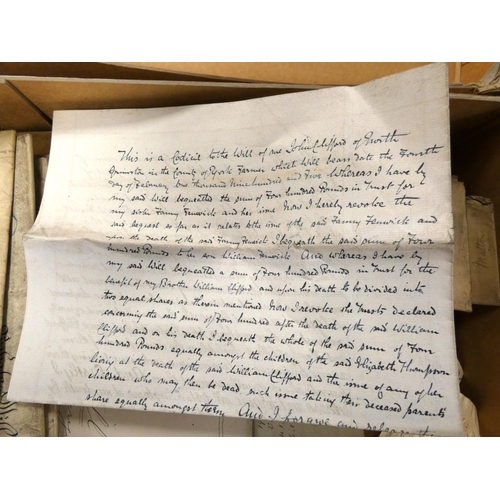 This is a Codicil to the Will of me John Clifford of North
Grimston in the County of York Farmer which Will bears date the Fourth
day of February One Thousand Nine hundred and Five Whereas I have by
my said Will bequeathed the sum of Four hundred Pounds in Trust for
my sister Fanny Fenwick and her issue Now I hereby revoke the
said bequest so far as it relates to the issue of the said Fanny Fenwick and
upon the death of the said Fanny Fenwick I bequeath the said sum of Four
hundred Pounds to her son William Fenwick And whereas I have by
my said Will bequeathed a sum of Four hundred Pounds in Trust for the
benefit of my Brother William Clifford and upon his death to be divided into
two equal shares as therein mentioned Now I revoke the Trusts declared
concerning the said sum of Four hundred after the death of the said William
Clifford and on his death I bequeath the whole of the said sum of Four
hundred Pounds equally amongst the children of the said Elizabeth Thompson
living at the death of the said William Clifford and the issue of any of her
children who may then be dead such issue taking their deceased parents
share equally amongst them And I forgive and release the